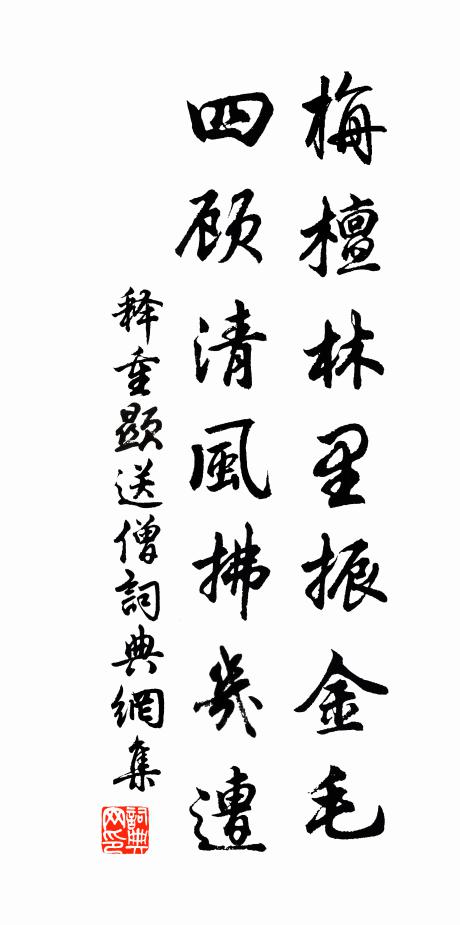 梅檀林里振金毛
四顾清風拂幾遭
释重顯送僧詞典網集
詞典網印